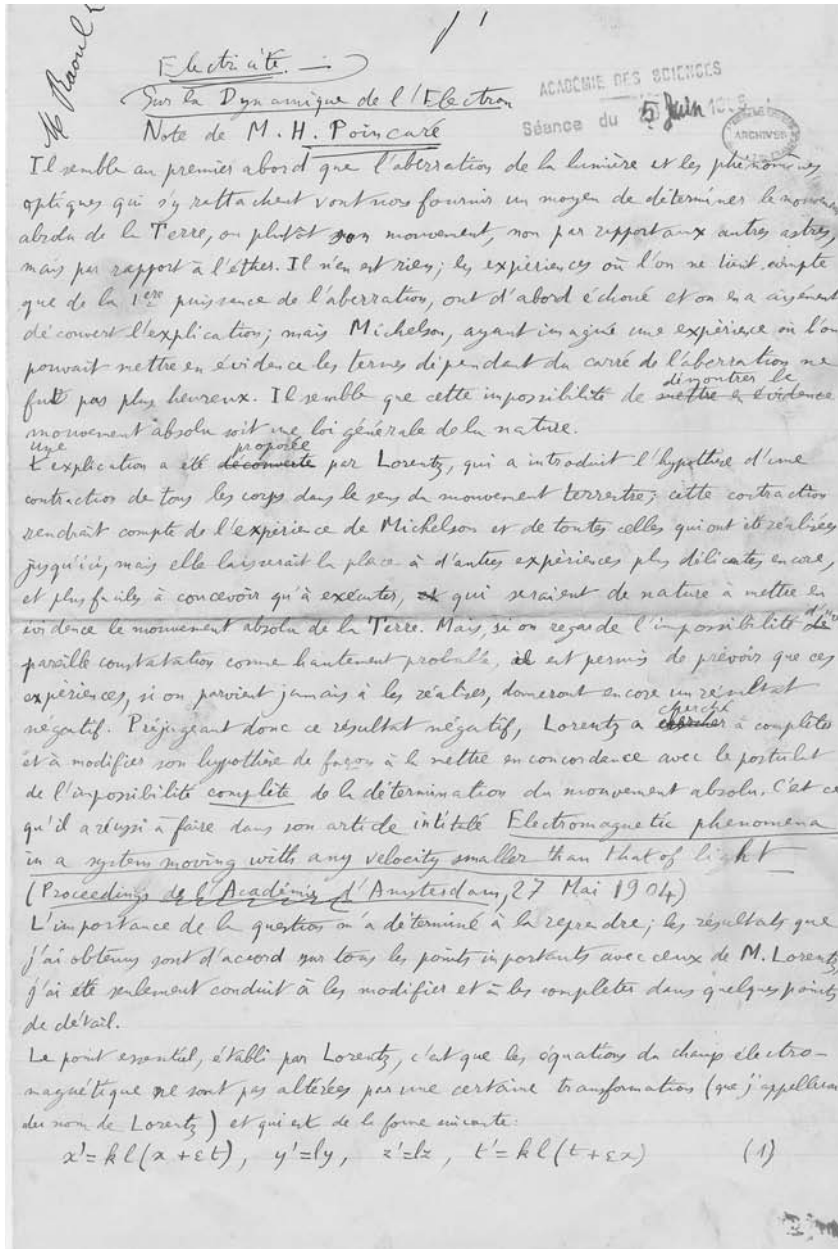 M Raoul
1
Electricité.
Sur la Dynamique de l'Electron
Note de M. H. Poincaré
ACADÉMIE DES SCIENCES
Séance du 5 Juin
ARCHIVES
Il semble au premier abord que l'aberration de la lumière et les phénomènes
optiques qui s'y rattachent vont nous fournir un moyen de déterminer le mouvement
absolu de la Terre, ou plutôt son mouvement, non par rapport aux autres astres,
mais par rapport à l'éther. Il n'en est rien; les expériences où l'on ne tient compte
que de la 1ère puissance de l'aberration, ont d'abord échoué et on en a aisément
découvert l'explication; mais Michelson, ayant imaginé une expérience où l'on
pouvait mettre en évidence les termes dépendant du carré de l'aberration ne
fut pas plus heureux. Il semble que cette impossibilité de mettre en évidence démontrer le
mouvement absolu soit une loi générale de la nature.
Une explication a été découverte proposée par Lorentz, qui a introduit l'hypothèse d'une
contraction de tous les corps dans le sens du mouvement terrestre; cette contraction
rendrait compte de l'expérience de Michelson et de toutes celles qui ont été réalisées
jusqu'ici, mais elle laisserait la place à d'autres expériences plus délicates encore,
et plus faciles à concevoir qu'à exécuter, et qui seraient de nature à mettre en
évidence le mouvement absolu de la Terre. Mais, si on regarde l'impossibilité d'une
pareille constatation comme hautement probable, il est permis de prévoir que ces
expériences, si on parvient jamais à les réaliser, donneront encore un résultat
négatif. Préjugeant donc ce résultat négatif, Lorentz a chercher cherché à compléter
et à modifier son hypothèse de façon à la mettre en concordance avec le postulat
de l'impossibilité complète de la détermination du mouvement absolu. C'est ce
qu'il a réussi à faire dans son article intitulé Electromagnetic phenomena
in a system moving with any velocity smaller than that of light
(Proceedings de l'Académie d'Amsterdam, 27 Mai 1904)
L'importance de la question m'a déterminé à la reprendre; les résultats que
j'ai obtenus sont d'accord sur tous les points importants avec ceux de M. Lorentz;
j'ai été seulement conduit à les modifier et à les compléter dans quelques points
de détail.
Le point essentiel, établi par Lorentz, c'est que les équations du champ électro-
magnétique ne sont pas altérées par une certaine transformation (que j'appellerai
du nom de Lorentz) et qui est de la forme suivante:
x' = kl(x + εt), y' = ly, z' = lz, t' = kl(t + εx) (1)